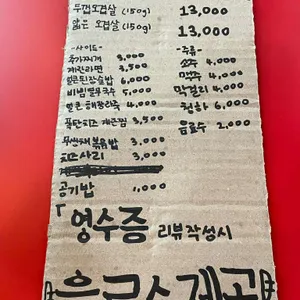 두껍오겹살 (150g) 13,000
얇은 오겹살 (150g) 13,000
-사이드-
추가찌개 3,000
계란라면 3,500
얼큰된장술밥 6,000
비빔쫄쫄국수 5,000
얼큰 해장라죽 4,000
폭탄치즈 계란찜 3,500
무생채볶음밥 3,000
치즈사리 3,000
공기밥 1,000
-주류-
소주 4,000
맥주 4,000
막걸리 4,000
청하 6,000
음료수 2,000
「영수증 리뷰작성시
음료수 제공